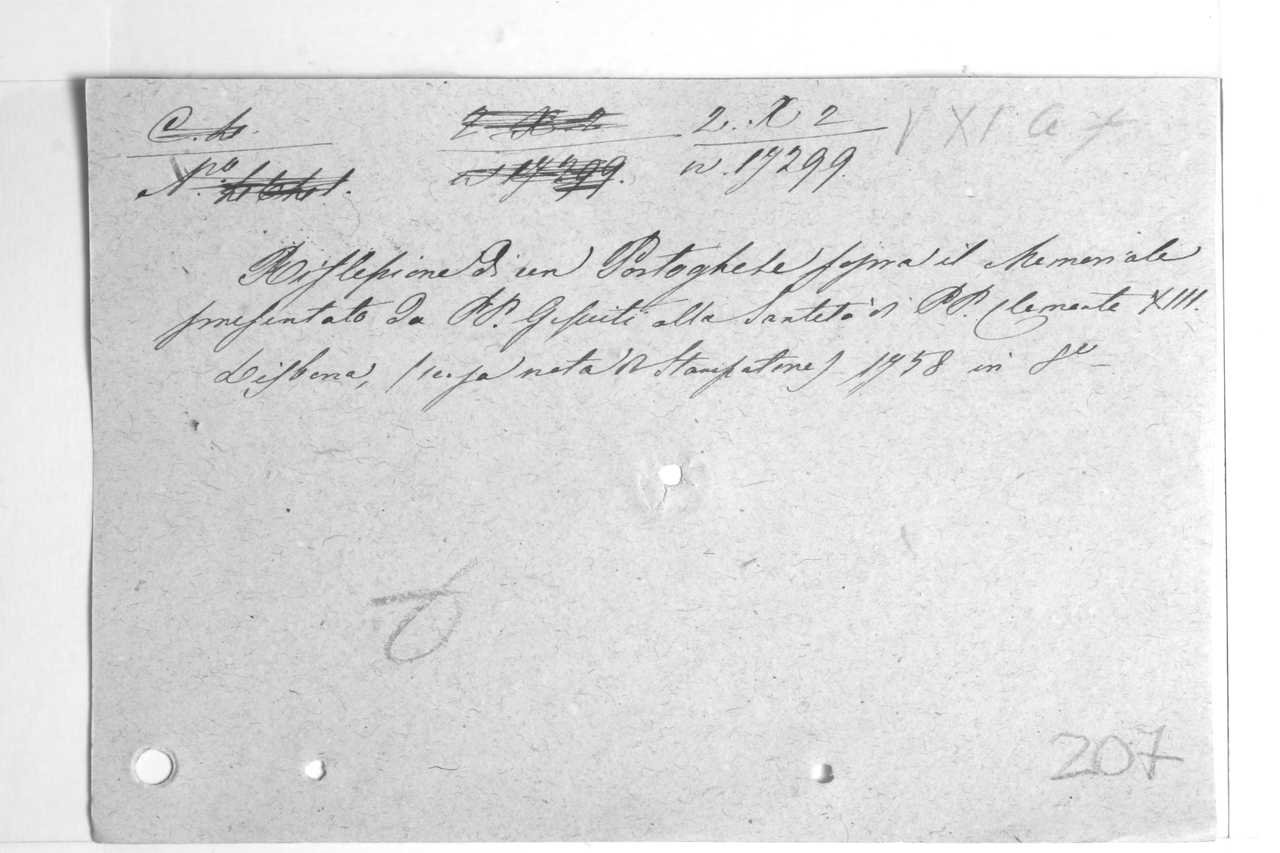 2. X 2
N.ro n. 17299.
Riflessione di un Portoghese sopra il Memoriale
presentato da PP. Gesuiti alla Santità di PP. Clemente XIII.
Lisbona, (senza nota di Stampatore) 1758 in 8º
207